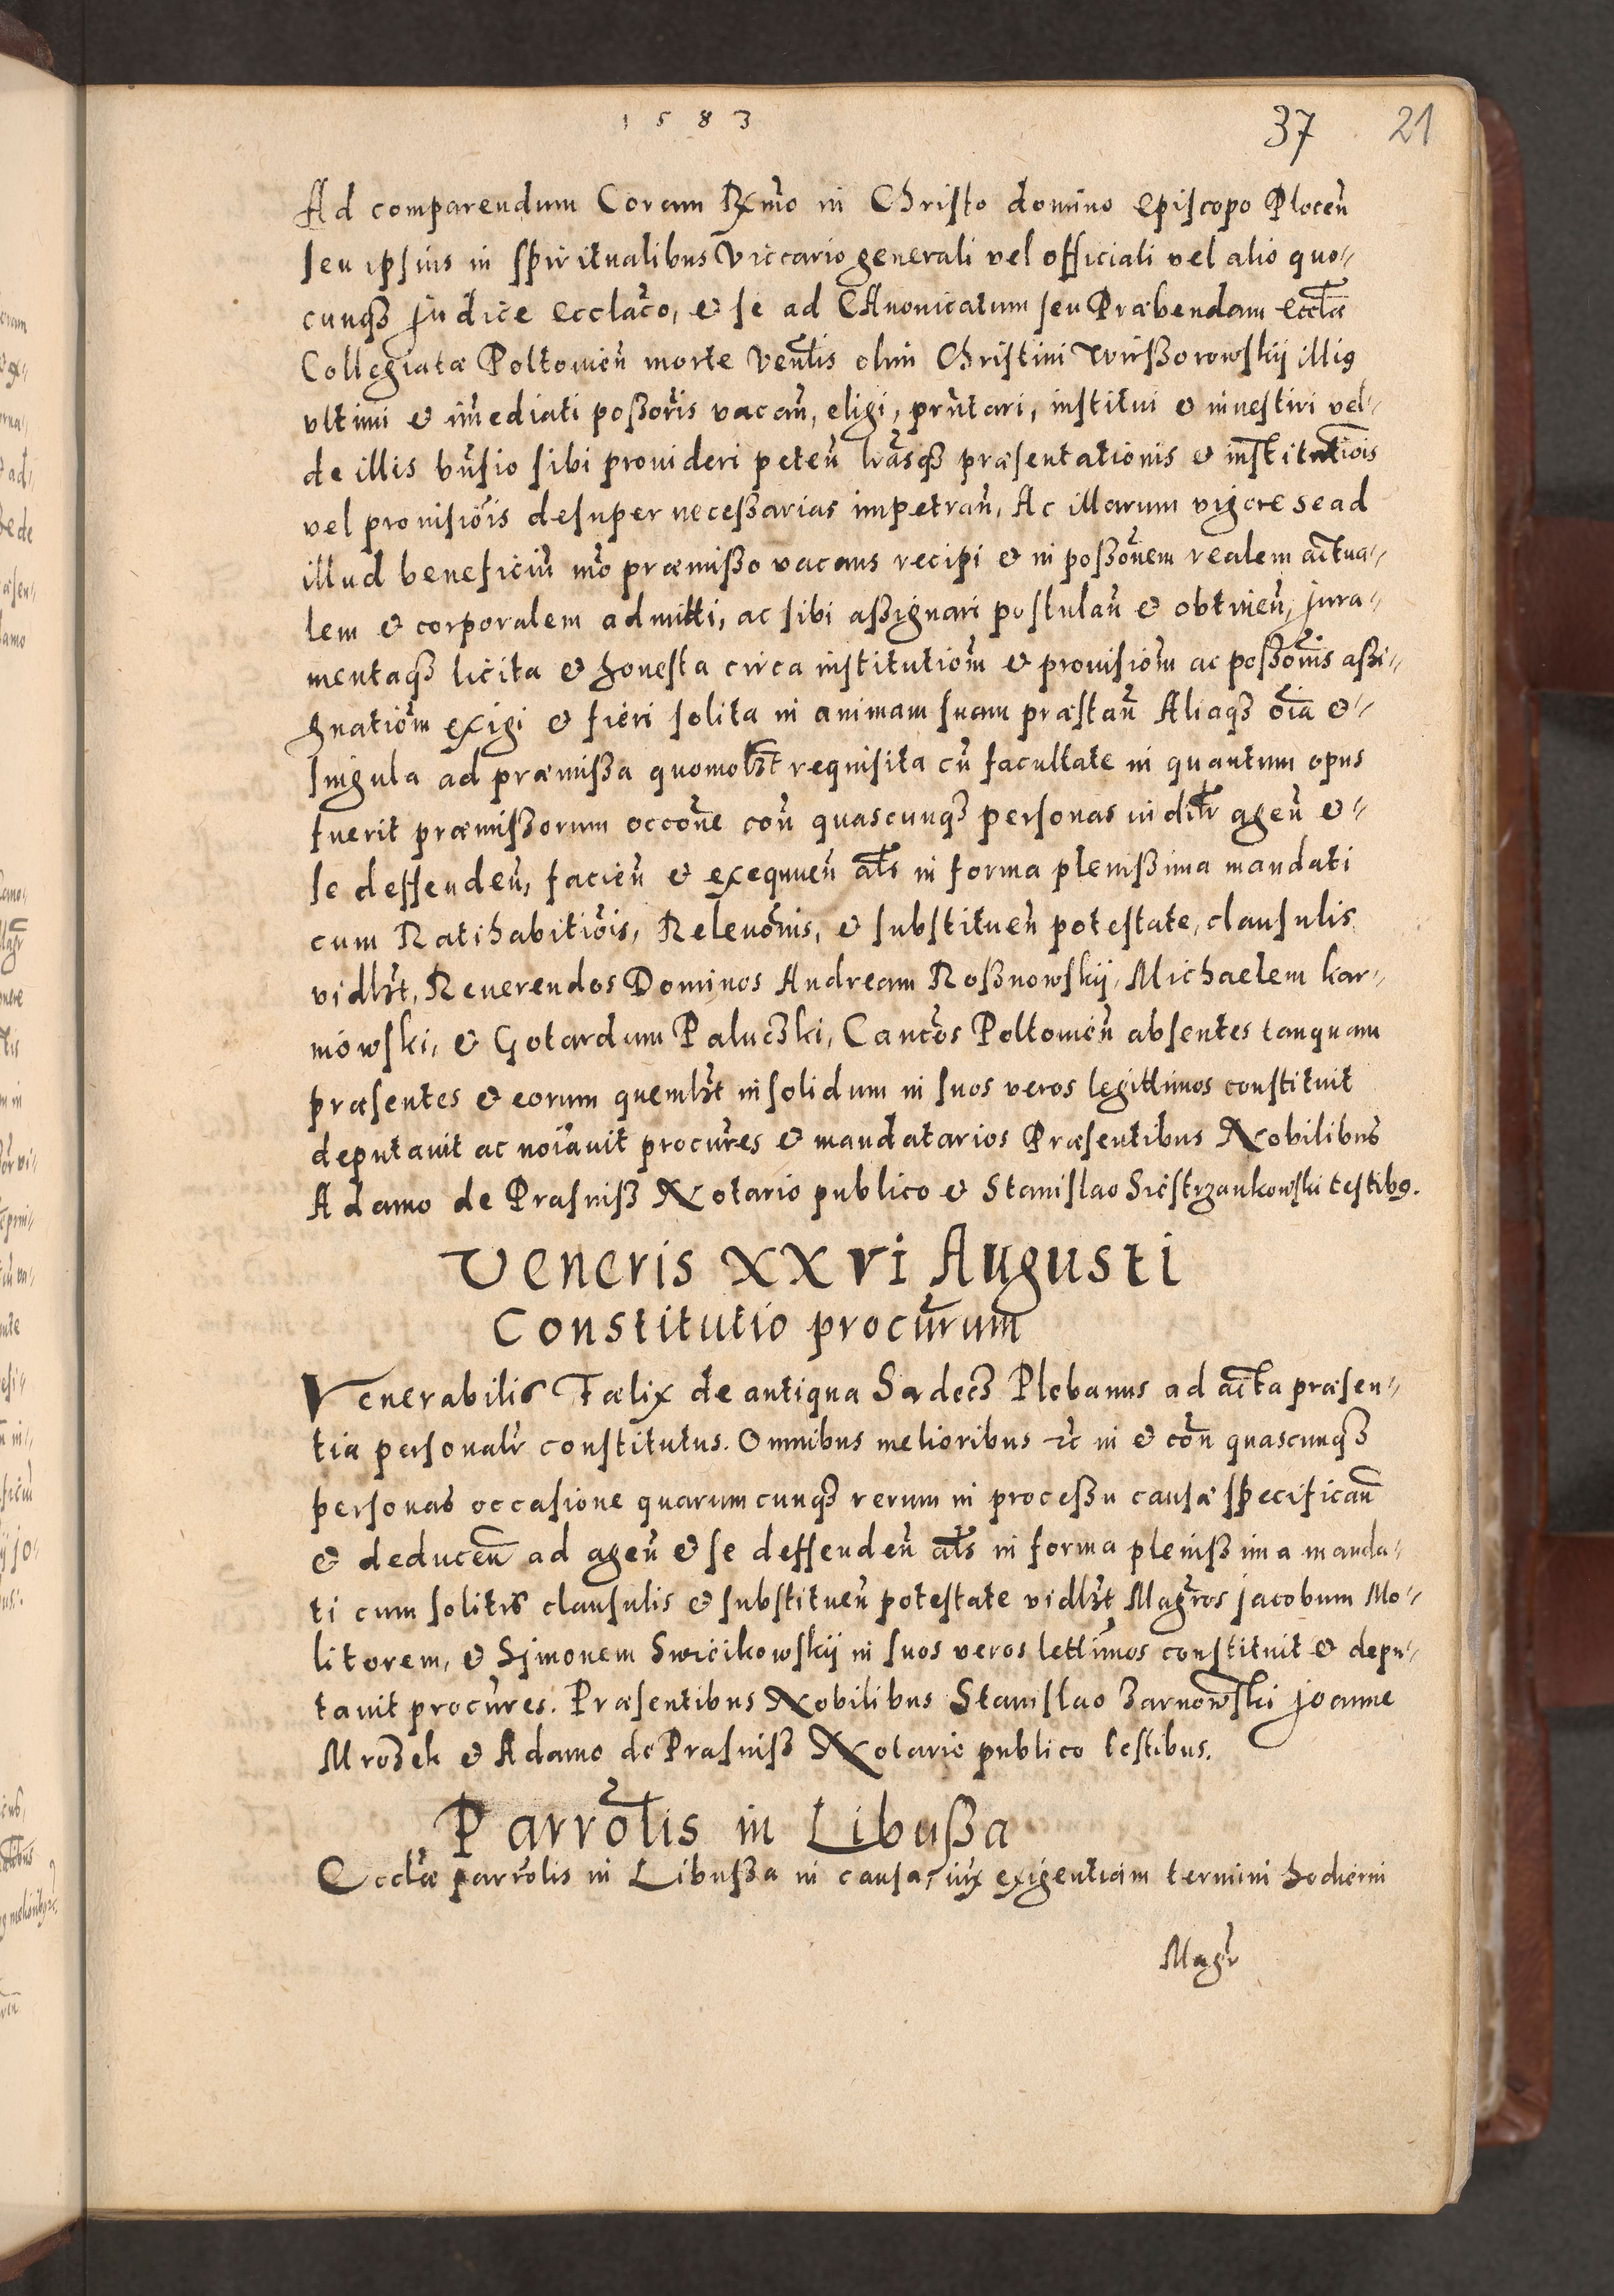 1583
37 21
Ad comparendum Coram Rx̃mo in Christo domino Episcopo Plocen̄
seu ipsius in spiritualibus Viccario generali vel officiali vel alio quo„
cunqȝ Judice Ecclãco, & se ad CAnonicatum seu Præbendam Eccl̃æ
Collegiatæ Poltowien̄ morte Venl̃is olim Christini Wirßorowskij illi9
vltimi & im̄ediati poßor̃is vacan̄, eligi, prn̄tari, institui & inuestiri vel„
de illis bn̄fio sibi prouideri peten̄ lr̃asqȝ præsentationis & institutio̅is
vel prouisio̅is desuper neceßarias impetran̄, Ac illarum vigore se ad
illud beneficiū mõ præmißo vacans recipi & in poßon̄em realem actua„
lem & corporalem admitti, ac sibi aßignari postulan̄ & obtinen̄, Jura„
mentaqȝ licita & honesta circa institutio̅m & prouisio̅m ac poßon̄is aßi„
gnatio̅m exigi & fieri solita in animam suam præstan̄ Aliaqȝ oīa &„
singula ad præmißa quomolȝt requisita cū facultate in quantum opus
fuerit præmißorum occõne con̄ quascunqȝ personas in dil̃r agen̄ &„
se deffenden̄, facien̄ & exequuen̄ al̃s in forma plenißima mandati
cum Ratihabitio̅is, Releuõnis, & substituen̄ potestate, clausulis
vidlȝt, Reuerendos Dominos Andream Roßnowskij, Michaelem kar„
niowski, & Gotardum Paluczki, Canc̃os Poltowien̄ absentes tanquam
præsentes & eorum quemlȝt insolidum in suos veros legittimos constituit
deputauit ac noīauit procur̃es & mandatarios Præsentibus Nobilibus
Adamo de Prasniß Notario publico & Stanislao Siestrzankowski testib9.
Veneris XXVI Augusti
Constitutio procur̃um
Venerabilis Fælix de antiqua Sadecȝ Plebanus ad acta præsen„
tia personalr̃ constitutus. Omnibus melioribus ꝛc in & con̄ quascunqȝ
personas occasione quarumcunqȝ rerum in proceßu causæ specifican̄
& deducen̄ ad agen̄ & se deffenden̄ al̃s in forma plenißima manda„
ti cum solitis clausulis & substituen̄ potestate vidlȝt Magr̃os Jacobum Mo„
litorem, & Symonem Swicikowskij in suos veros lettimos constituit & depu„
tauit procur̃es. Præsentibus Nobilibus Stanislao Zarnowski Joanne
Mrozek & Adamo de Prasniß Notario publico testibus.
Parrõlis in Libußa
Eccl̃æ parrõlis in Libußa in causa, iux exigentiam termini hodierni
Magr̃